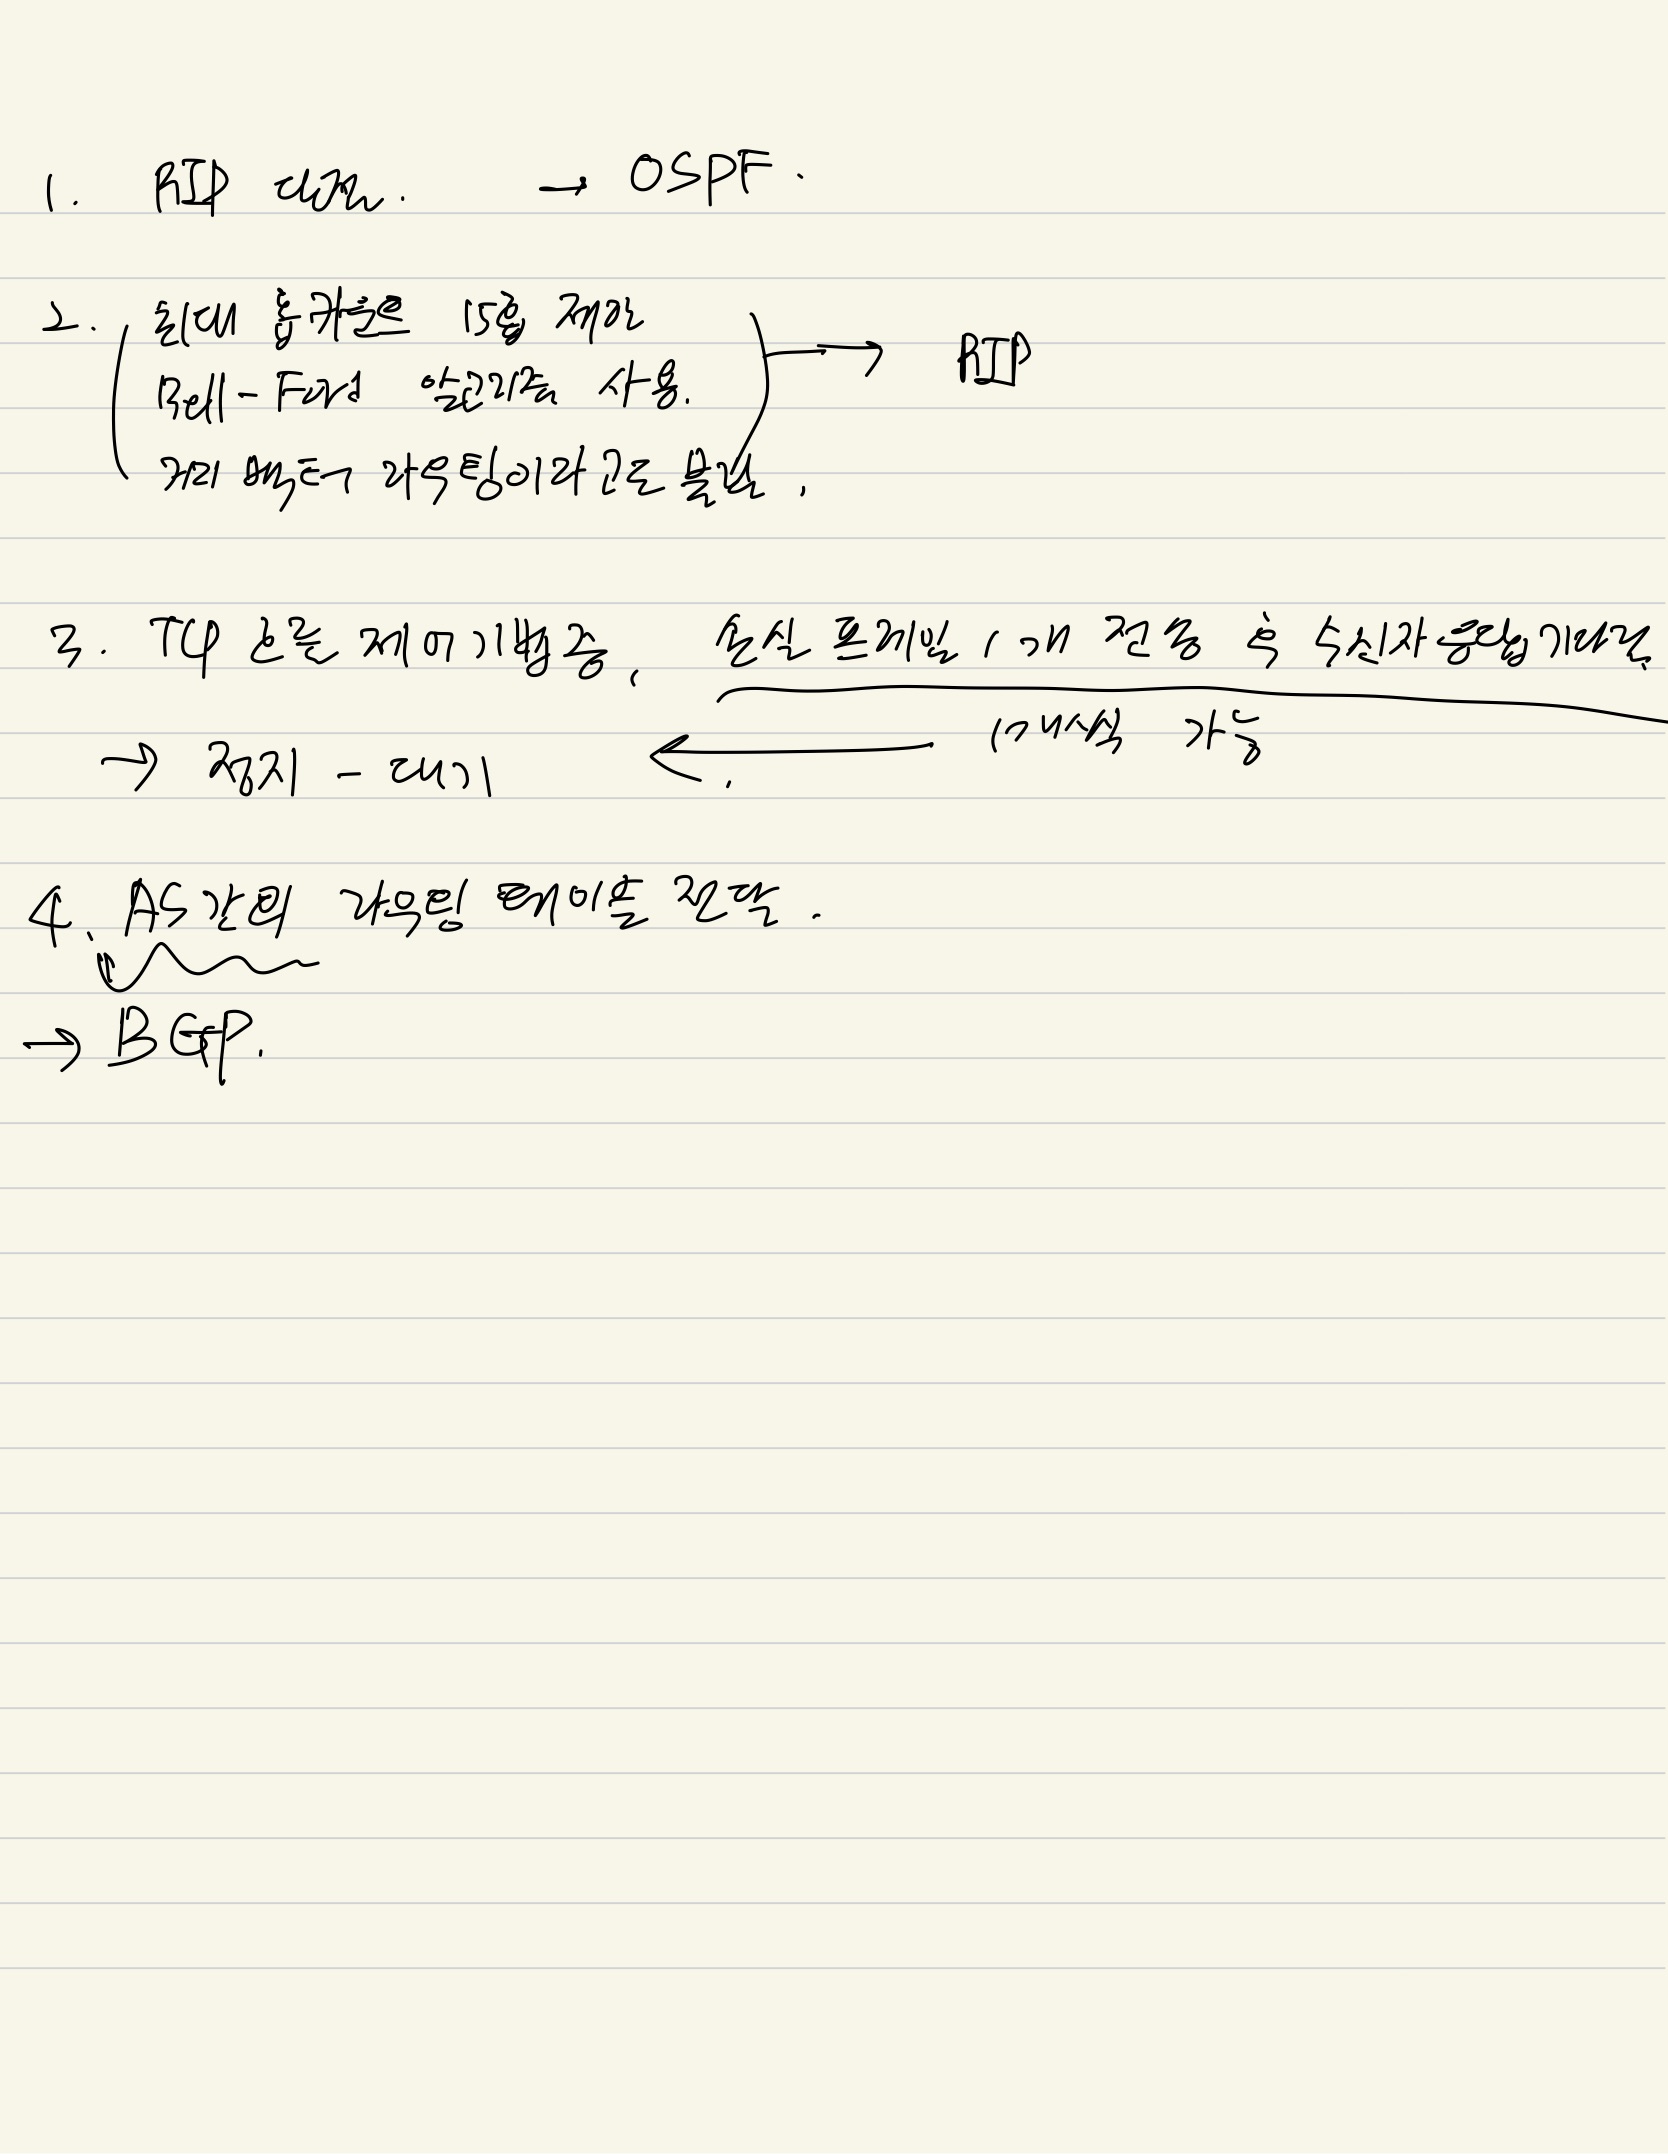 1. RIP 단점. → OSPF.
2. 최대 홉카운트 15홉 제한
Bell-Ford 알고리즘 사용. → RIP
거리 벡터 라우팅이라고도 불림.
3. TCP 흐름 제어기법중, 프레임 1개 전송 후 수신자 응답 기다림
1개씩 가능
→ 정지-대기 ←
4. AS간의 라우팅 테이블 전달.
→ BGP.